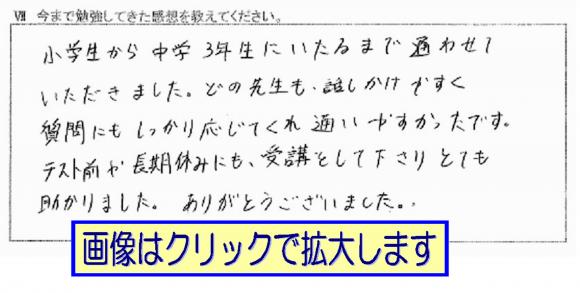 Ⅶ 今まで勉強してきた感想を教えてください。
小学生から中学3年生にいたるまで通わせて
いただきました。どの先生も、話しかけやすく
質問にもしっかり応じてくれ通いやすかったです。
テスト前や長期休みにも、受講をして下さりとても
助かりました。ありがとうございました。
画像はクリックで拡大します